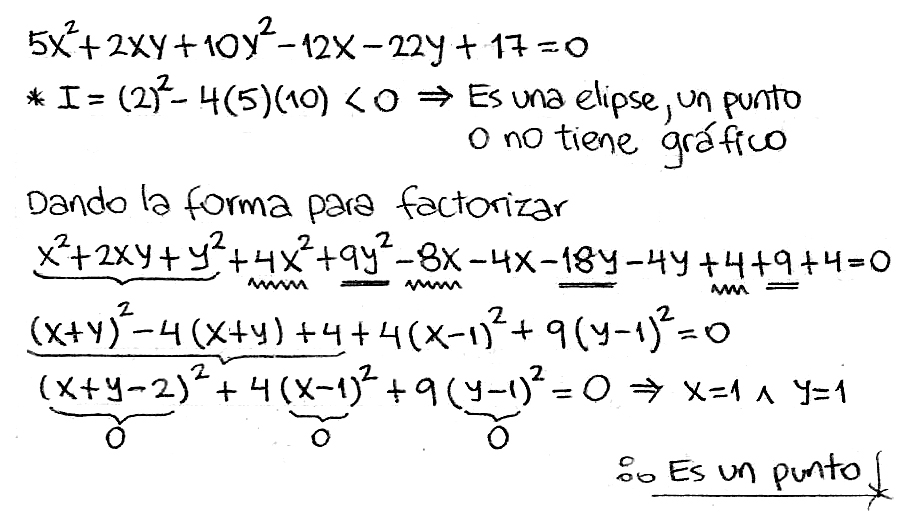 5x²+2xy+10y²-12x-22y+17=0
* I=(2)²-4(5)(10)<0 ⇒ Es una elipse, un punto
o no tiene gráfico
Dando la forma para factorizar
x²+2xy+y²+4x²+9y²-8x-4x-18y-4y+4+9+4=0
(x+y)²-4(x+y)+4+4(x-1)²+9(y-1)²=0
(x+y-2)²+4(x-1)²+9(y-1)²=0 ⇒ x=1 ∧ y=1
0 0 0
∴ Es un punto